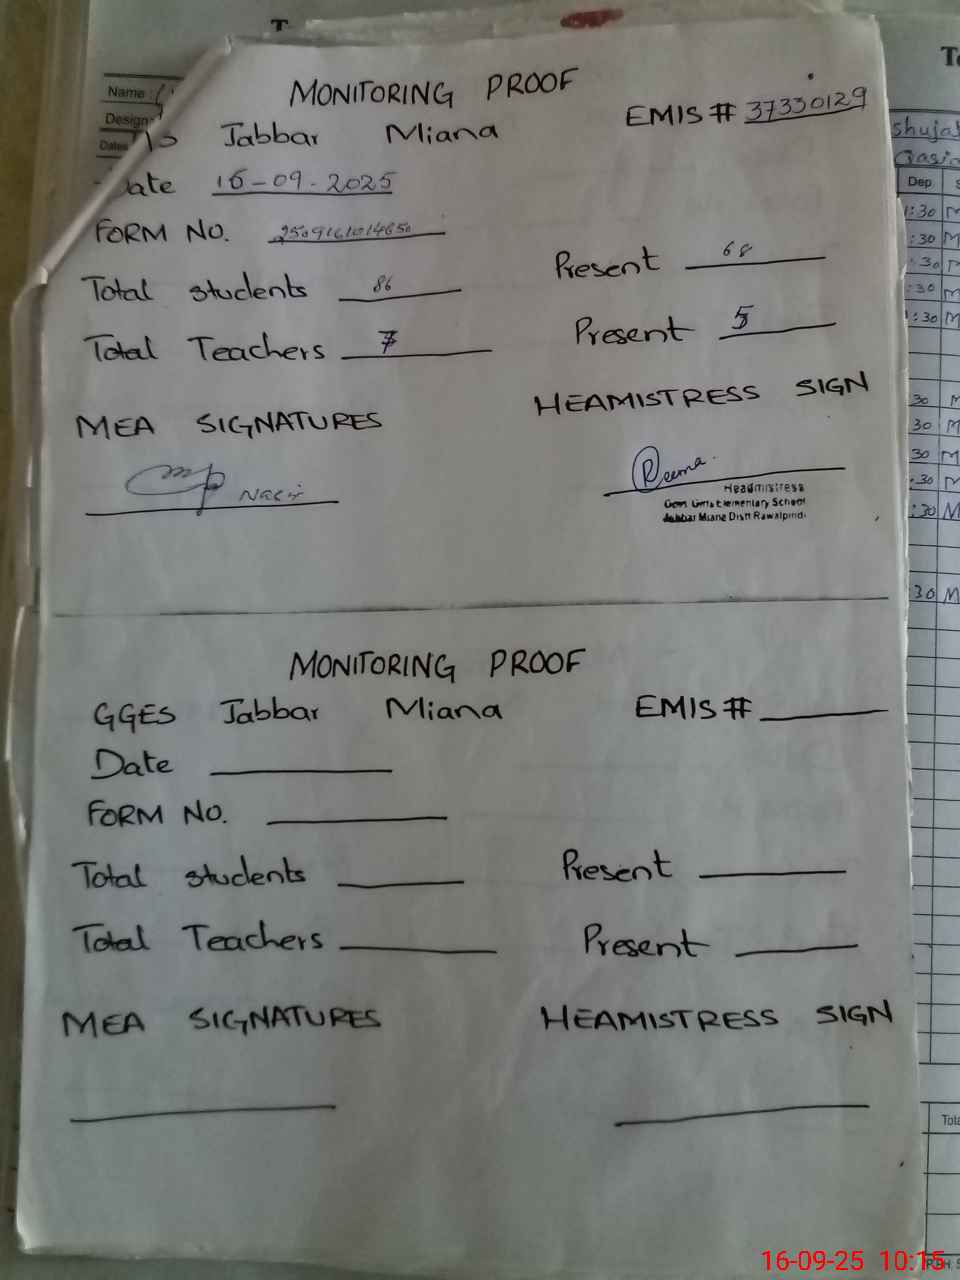 MONITORING PROOF
EMIS # 37330129
Jabbar Miana
Date 16-09-2025
FORM NO.
Total students 86 Present 68
Total Teachers 7 Present 5
MEA SIGNATURES HEAMISTRESS SIGN
Nasir Reema
Headmistress
Govt. Girls Elementary School
Jabbar Miana Distt Rawalpindi
MONITORING PROOF
GGES Jabbar Miana EMIS #
Date
FORM NO.
Total students Present
Total Teachers Present
MEA SIGNATURES HEAMISTRESS SIGN
Name :
Dates
Dep
:30 M
:30 M
:30 M
:30 M
:30 M
30 M
30 M
30 M
:30 M
:30 M
30 M
16-09-25 10:15